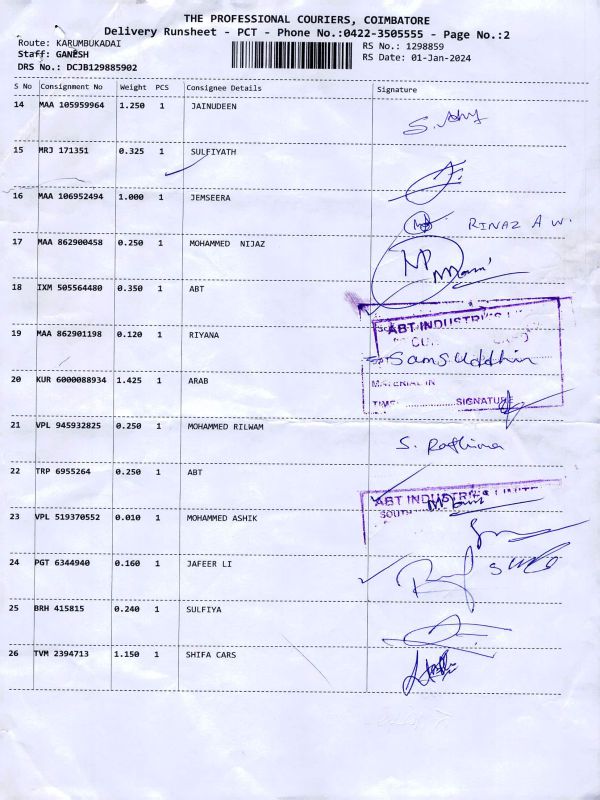 THE PROFESSIONAL COURIERS, COIMBATORE
Delivery Runsheet - PCT - Phone No.:0422-3505555 - Page No.:2
Route: KARUMBUKADAI RS No.: 1298859
Staff: GANESH RS Date: 01-Jan-2024
DRS No.: DCJB129885902
S No Consignment No Weight PCS Consignee Details Signature
14 MAA 105959964 1.250 1 JAINUDEEN
15 MRJ 171351 0.325 1 SULFIYATH
16 MAA 106952494 1.000 1 JEMSEERA
RINAZ A W.
17 MAA 862900458 0.250 1 MOHAMMED NIJAZ
18 IXM 505564480 0.350 1 ABT
ABT INDUSTRI
19 MAA 862901198 0.120 1 RIYANA
Samsuddhin
20 KUR 6000088934 1.425 1 ARAB
MATERIAL IN
TIME SIGNATURE
21 VPL 945932825 0.250 1 MOHAMMED RILWAM
S. Rathina
22 TRP 6955264 0.250 1 ABT
ABT INDUSTRIES LIMITED
SOUTH
23 VPL 519370552 0.010 1 MOHAMMED ASHIK
24 PGT 6344940 0.160 1 JAFEER LI
25 BRH 415815 0.240 1 SULFIYA
26 TVM 2394713 1.150 1 SHIFA CARS